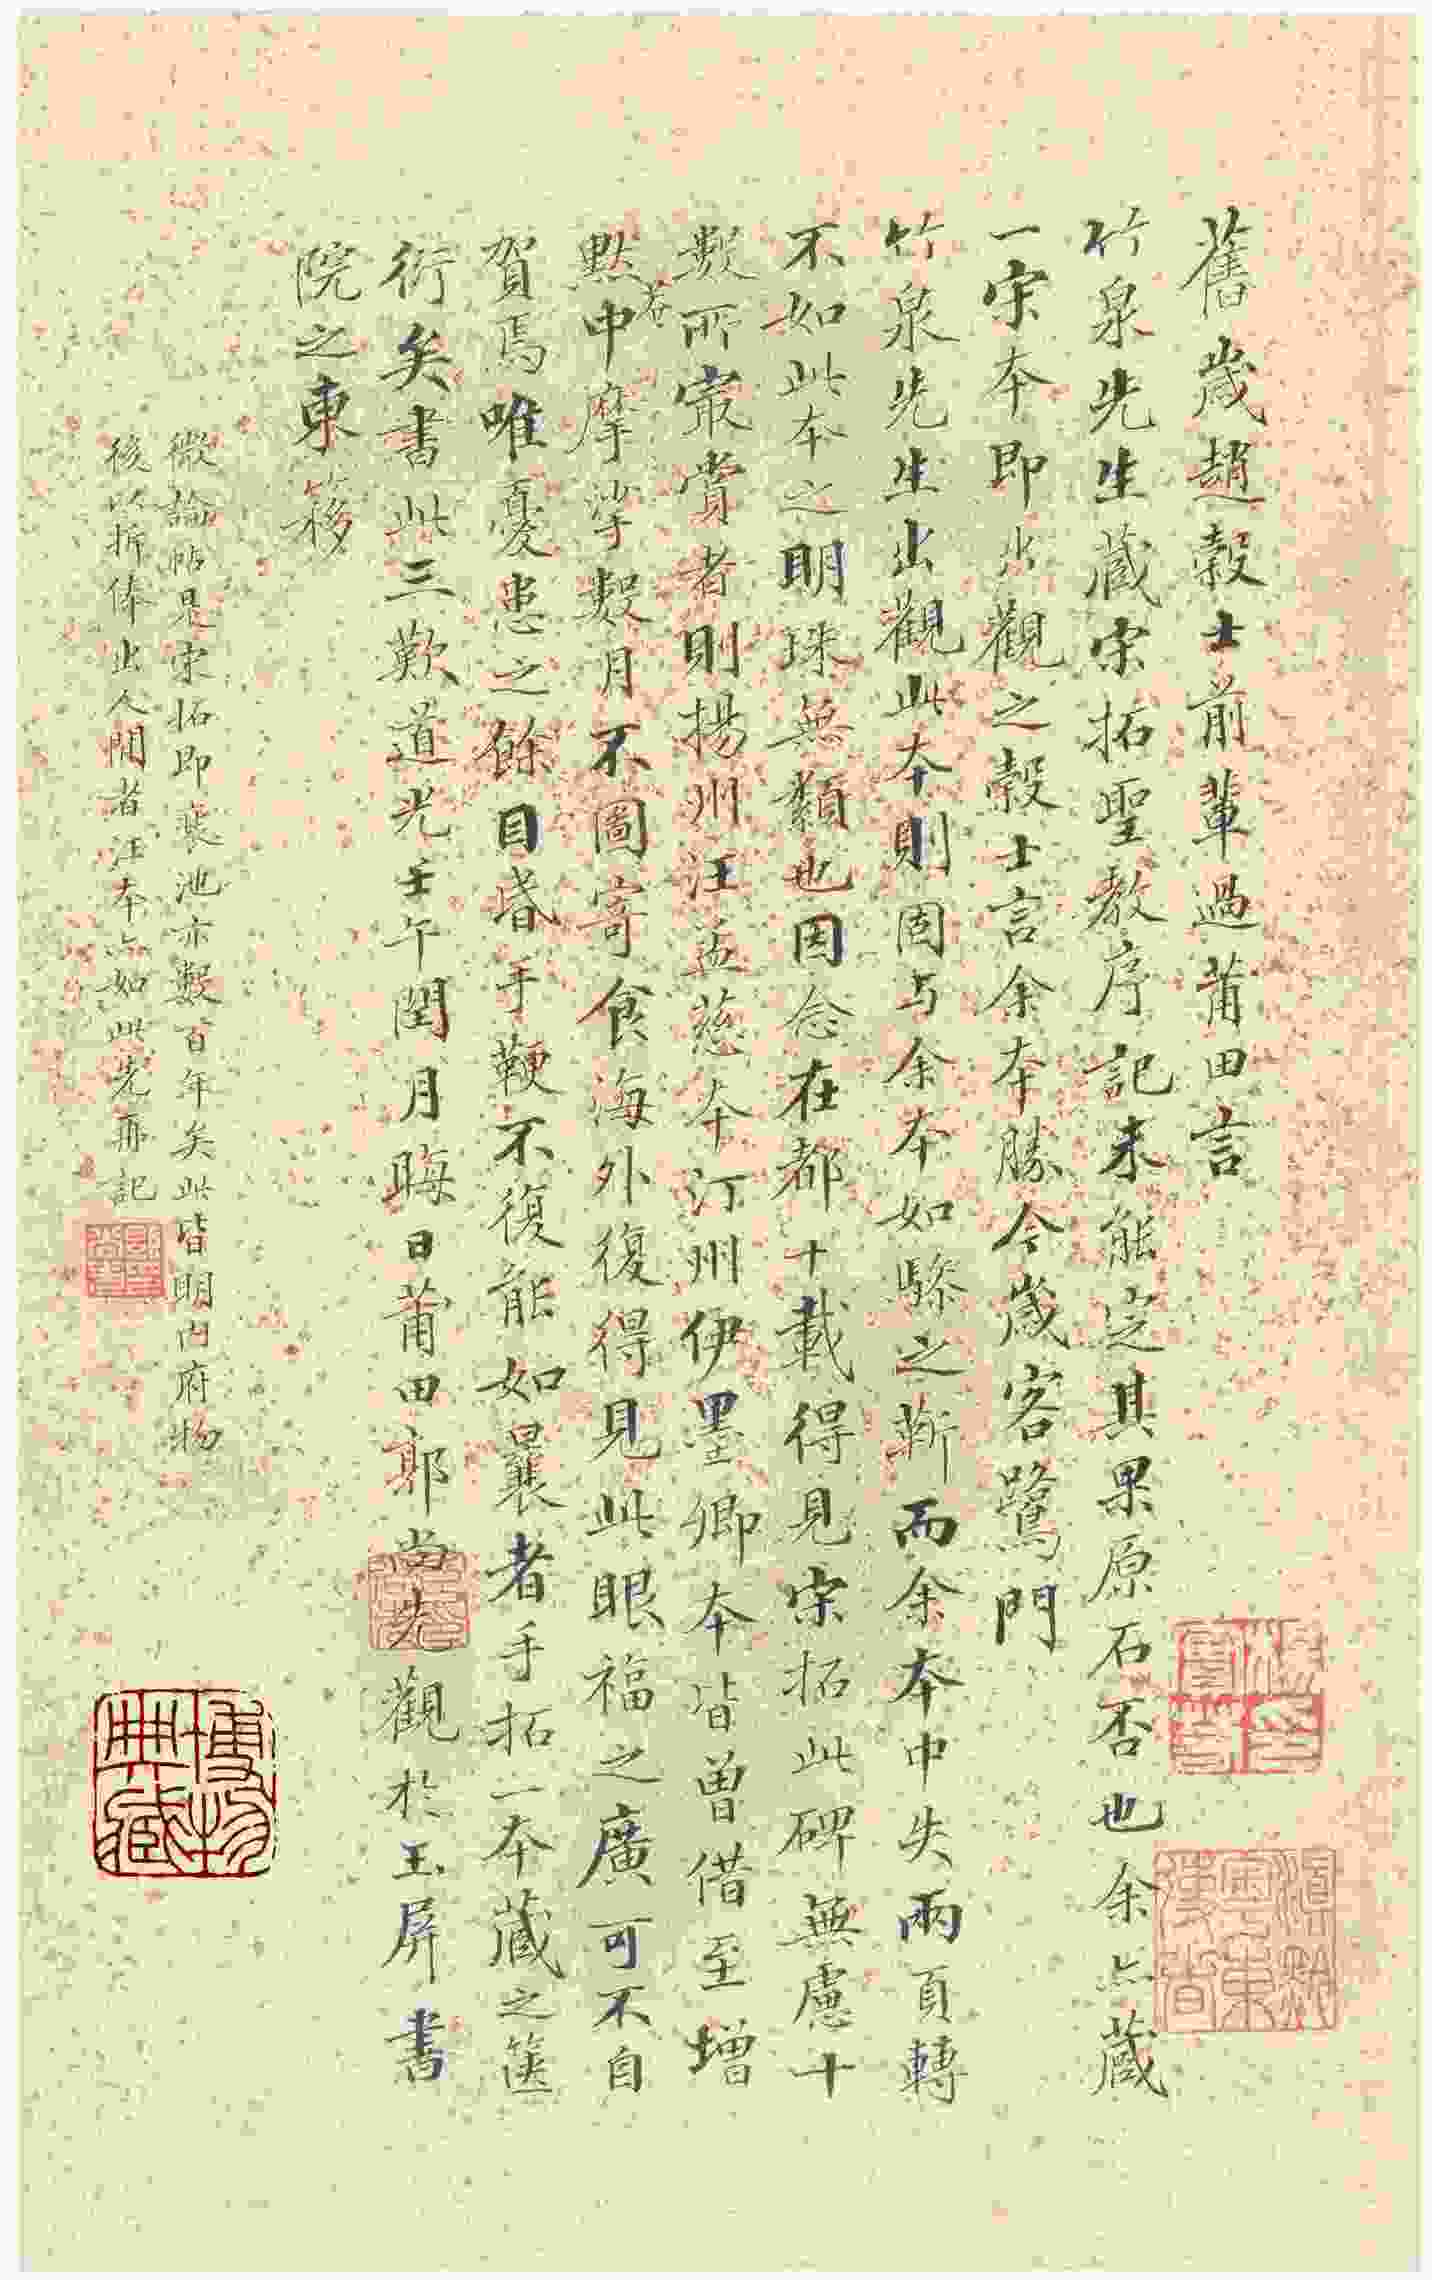 舊歲趙穀士前輩過莆田言
竹泉先生藏宋拓聖教序記未能定其果原石否也余亦藏
一宋本即出觀之穀士言余本勝今歲客鷺門
竹泉先生出觀此本則固与余本如驂之靳而余本中失兩頁轉
不如此本之明珠無纇也因念在都十載得見宋拓此碑無慮十
數所寂賞者則揚州汪孟慈本汀州伊墨卿本皆曾借至增
默菴中摩挲數月不圖寄食海外復得見此眼福之廣可不自
賀焉唯憂患之餘目昏手鞕不復能如曩者手拓一本藏之篋
衍矣書此三歎道光壬午閏月晦日莆田郭尚先觀於玉屏書
院之東簃
微論帖是宋拓即裝池亦數百年矣此皆明內府物
後以折俸出人間者汪本亦如此先再記
博物
典藏